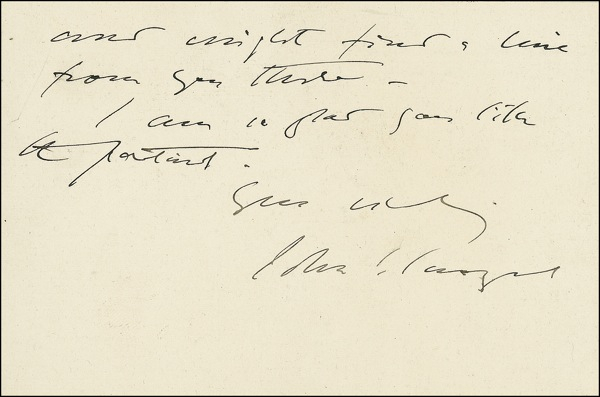 and might find a line
from you there –
I am so glad you like
the portrait.
Yours
John S. Sargent